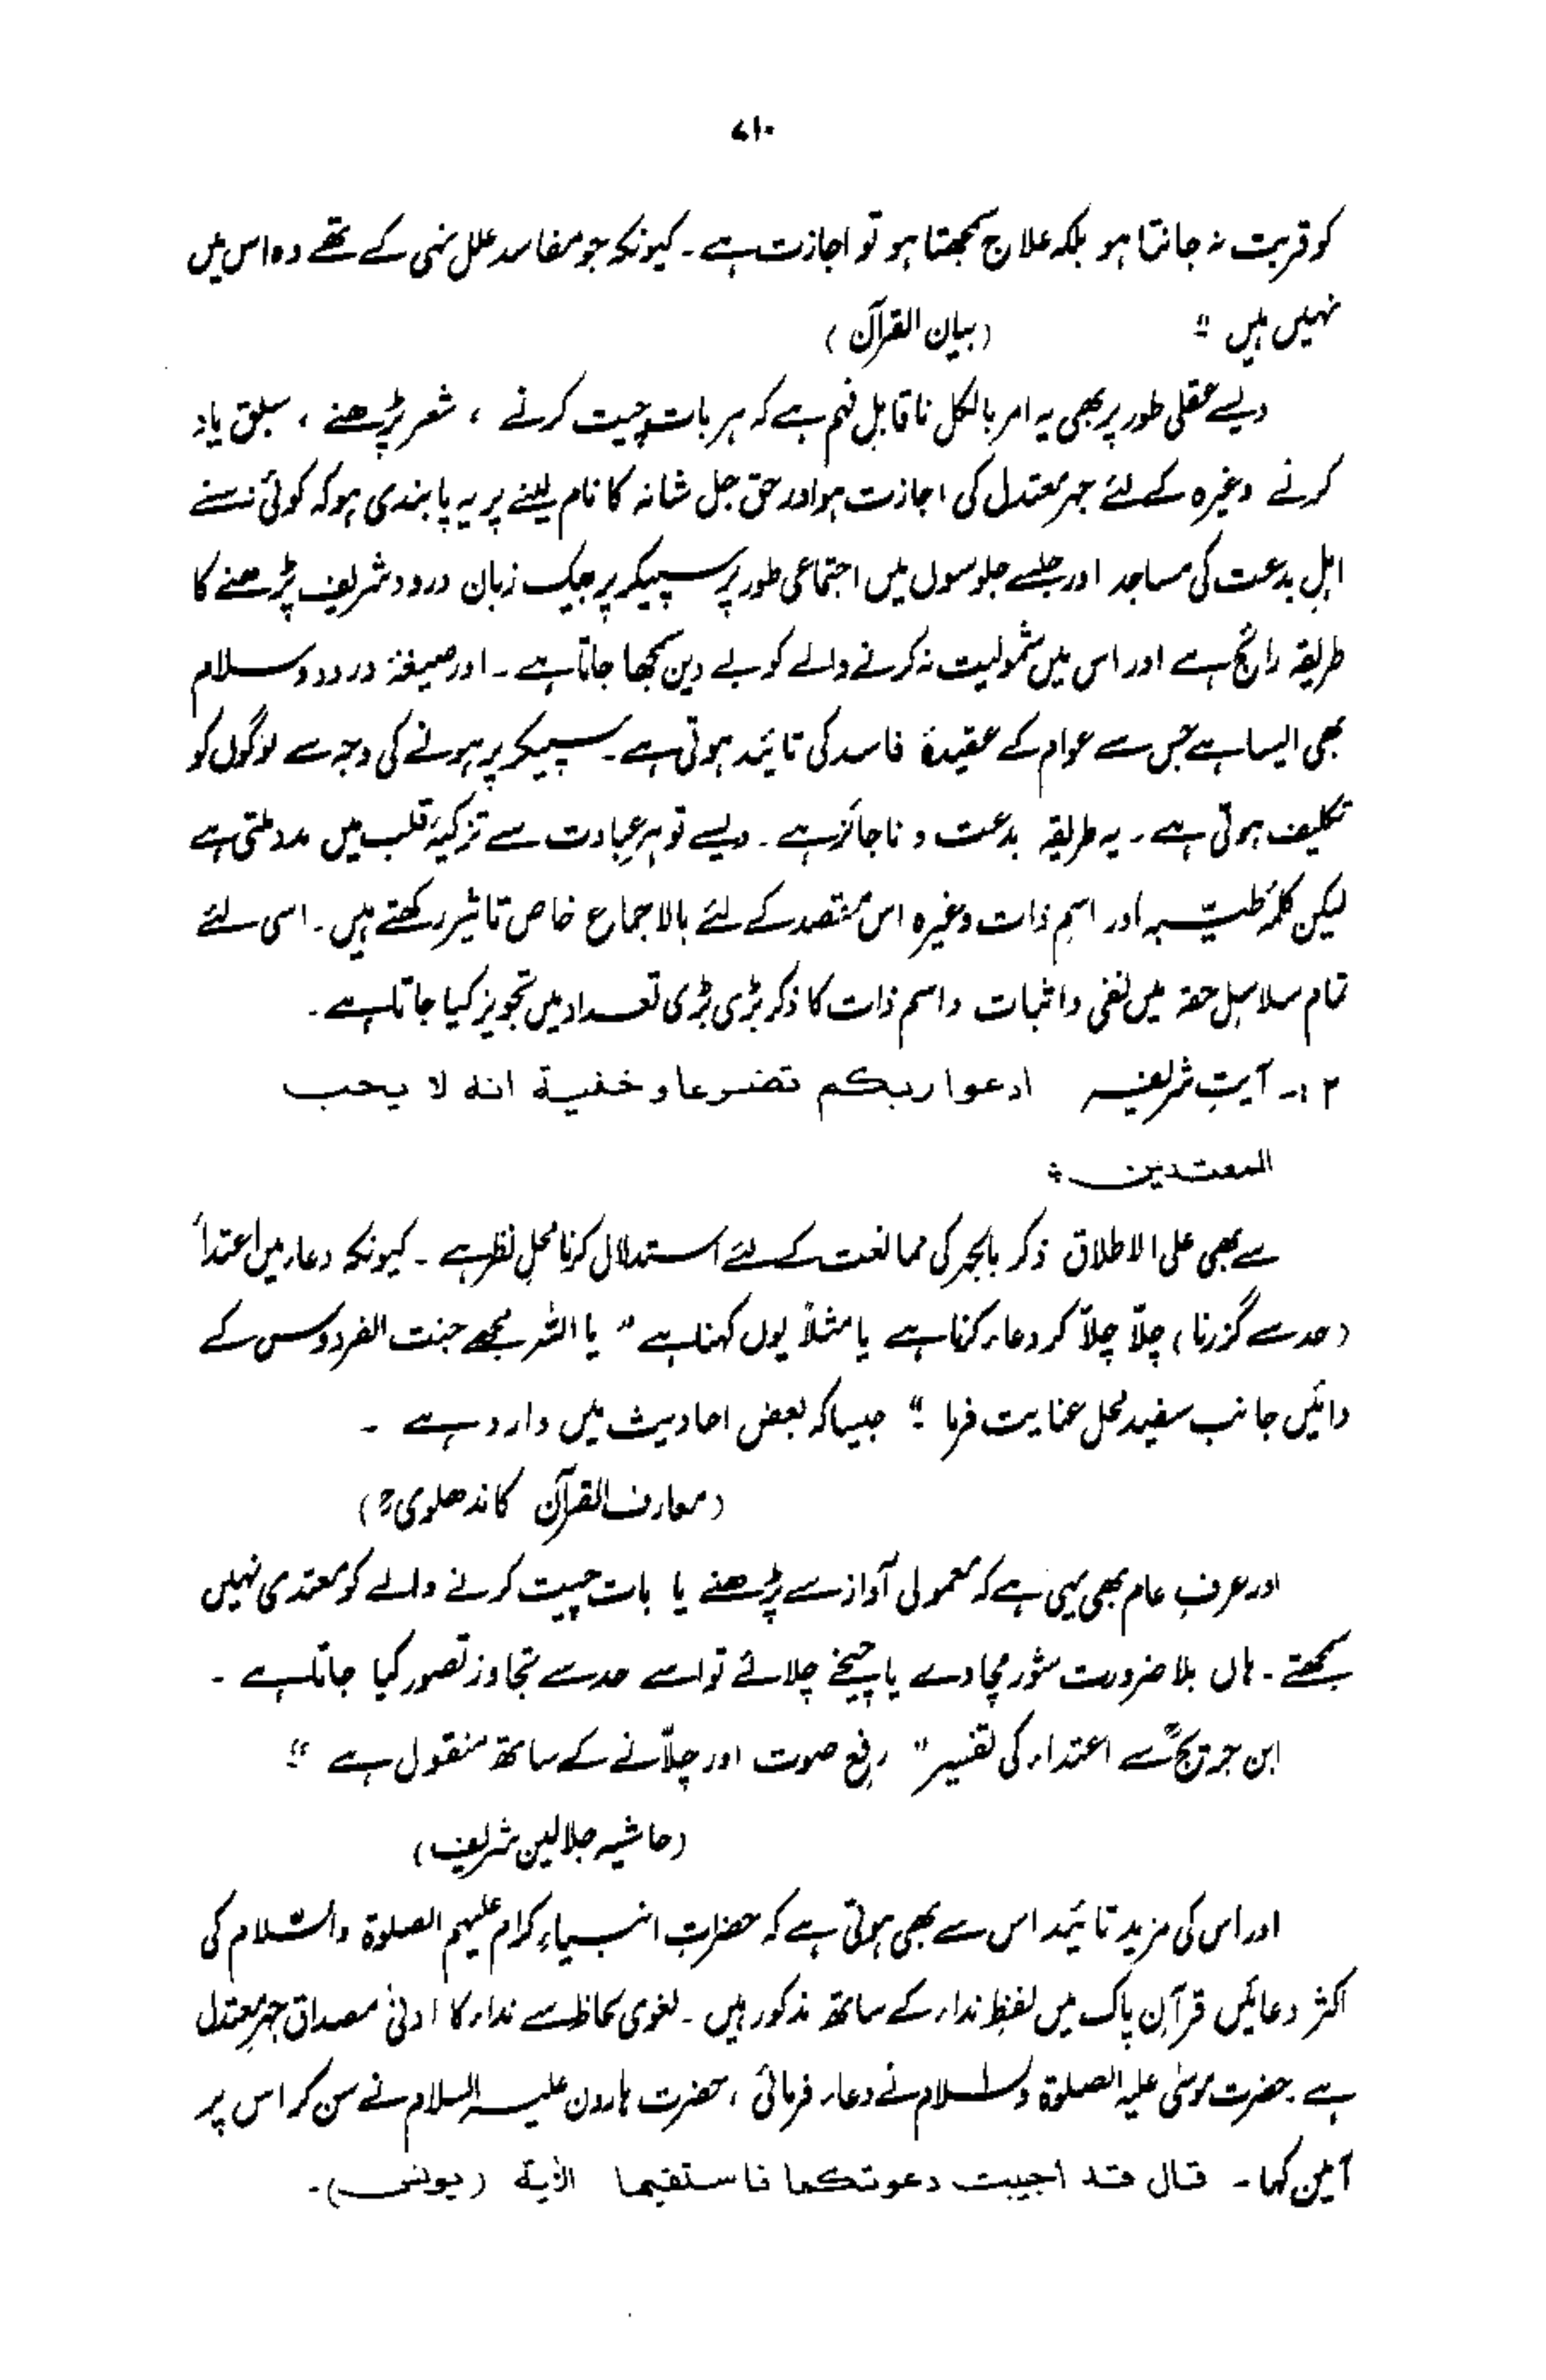 ۷۱۰
کو قربت نہ جانتا ہو بلکہ علاج سمجھتا ہو تو اجازت ہے ۔ کیونکہ جو مفاسد علل نہی کے تھے وہ اس میں
نہیں ہیں " (بیان القرآن)
ویسے عقلی طور پر بھی یہ امر بالکل ناقابل فہم ہے کہ ہر بات چیت کرنے ، شعر پڑھنے ، سبق یاد
کرنے وغیرہ کے لئے جہر معتدل کی اجازت ہو اور حق جل شانہ کا نام لینے پر یہ پابندی ہو کہ کوئی نہ سنے
اہل بدعت کی مساجد اور جلسے جلوسوں میں اجتماعی طور پر سپیکر پر بیک زبان درود شریف پڑھنے کا
طریقہ رائج ہے اور اس میں شمولیت نہ کرنے والے کو بے دین سمجھا جاتا ہے ۔ اور صیغۂ درود و سلام
بھی ایسا ہے جس سے عوام کے عقیدۂ فاسد کی تائید ہوتی ہے ۔ سپیکر پر ہونے کی وجہ سے لوگوں کو
تکلیف ہوتی ہے ۔ یہ طریقہ بدعت و ناجائز ہے ۔ ویسے تو ہر عبادت سے تزکیۂ قلب میں مدد ملتی ہے
لیکن کلمۂ طیبہ اور اسم ذات وغیرہ اس مقصد کے لئے بالاجماع خاص تاثیر رکھتے ہیں ۔ اسی لئے
تمام سلاسل حقہ میں نفی و اثبات و اسم ذات کا ذکر بڑی بڑی تعداد میں تجویز کیا جاتا ہے ۔
۲ :۔ آیت شریفہ ادعوا ربکم تضرعا و خفیۃ انہ لا یحب
المعتدین ۃ
سے بھی علی الاطلاق ذکر بالجہر کی ممانعت کے لئے استدلال کرنا محل نظر ہے ۔ کیونکہ دعاء میں اعتداً
(حد سے گزرنا) چلّا چلّا کر دعاء کرنا ہے یا مثلاً یوں کہنا ہے " یا اللہ مجھے جنت الفردوس کے
دائیں جانب سفید محل عنایت فرما " جیسا کہ بعض احادیث میں وارد ہے ۔
(معارف القرآن کاندھلویؒ)
اور عرفِ عام بھی یہی ہے کہ معمولی آواز سے پڑھنے یا بات چیت کرنے والے کو معتدی نہیں
سمجھتے ۔ ہاں بلا ضرورت شور مچاوے یا چیخے چلائے تو اسے حد سے تجاوز تصور کیا جاتا ہے ۔
ابن جریجؒ سے اعتداء کی تفسیر " رفع صوت اور چلّانے کے ساتھ منقول ہے "
(حاشیہ جلالین شریف)
اور اس کی مزید تائید اس سے بھی ہوتی ہے کہ حضراتِ انبیاءِ کرام علیہم الصلوۃ والسّلام کی
اکثر دعائیں قرآن پاک میں لفظِ نداء کے ساتھ مذکور ہیں ۔ لغوی لحاظ سے نداء کا ادنیٰ مصداق جہرِ معتدل
ہے ۔ حضرت موسیٰ علیہ الصلوۃ والسلام نے دعاء فرمائی ، حضرت ہارون علیہ السلام نے سن کر اس پر
آمین کہا ۔ قال قد اجیبت دعوتکما فاستقیما الآیۃ (یونس) ۔